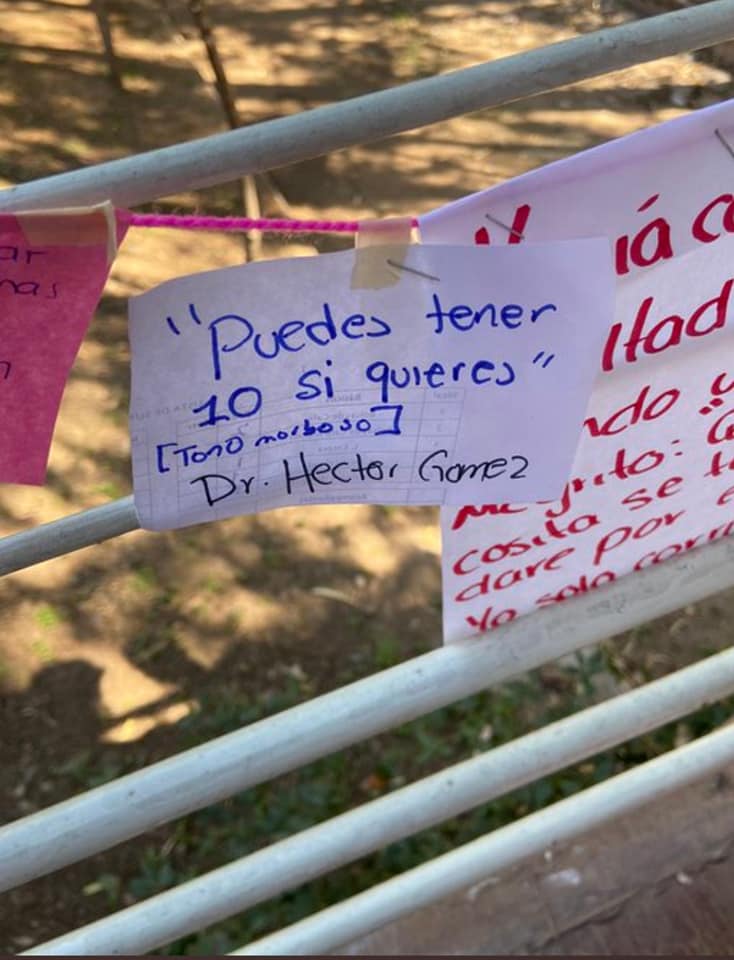 "Puedes tener
10 si quieres"
[Tono morboso]
Dr. Hector Gomez
ar
nas
iá co
ltad
ndo
grito:
cosita se
dare por
Yo solo